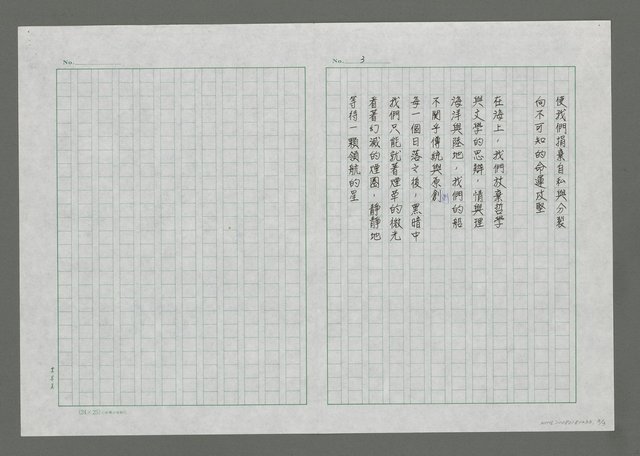 No. 3
使我們捐棄自私與分裂
向不可知的命運攻堅
在海上，我們放棄哲學
與文學的思辯，情與理
海洋與陸地，我們的船
不關乎傳統與原創
每一個日落之後，黑暗中
我們只能就著煙草的微光
看著幻滅的煙圈，靜靜地
等待一顆領航的星
No.
(24×25)